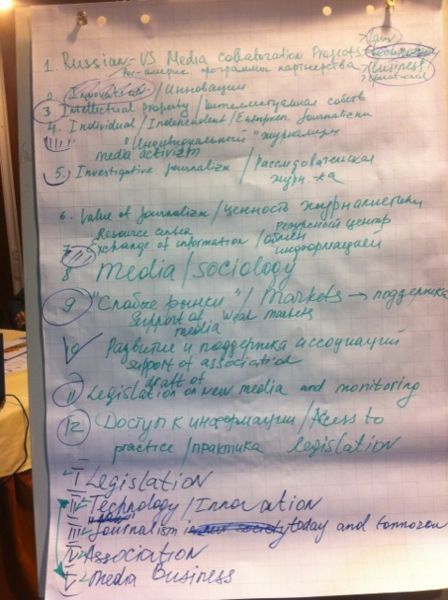 1. Russian-US Media Collaboration Projects
> law
> business
> educational
Рос-америк программы партнерства
2. Innovation / Инновации
3 Intellectual Property / интеллектуальная собств
4. Individual / Independent / European Journalism
"Индивидуальный" журнализм
media activism
5. Investigative journalism / Расследовательская
журн-ка
6. Value of Journalism / ценность журналистики
Resource center / Ресурсный центр
7. Exchange of information / обмен
информацией
8 Media / sociology
9 "Слабые рынки" / Markets → поддержка
Support of weak markets
media
10 Развитие и поддержка ассоциаций
support of association
draft of
11 Legislation on new media and monitoring
12. Доступ к информации / Access to
practice / практика legislation
I Legislation
II Technology / Innovation
III "Journalism in today and tomorrow
IV Association
V Media Business